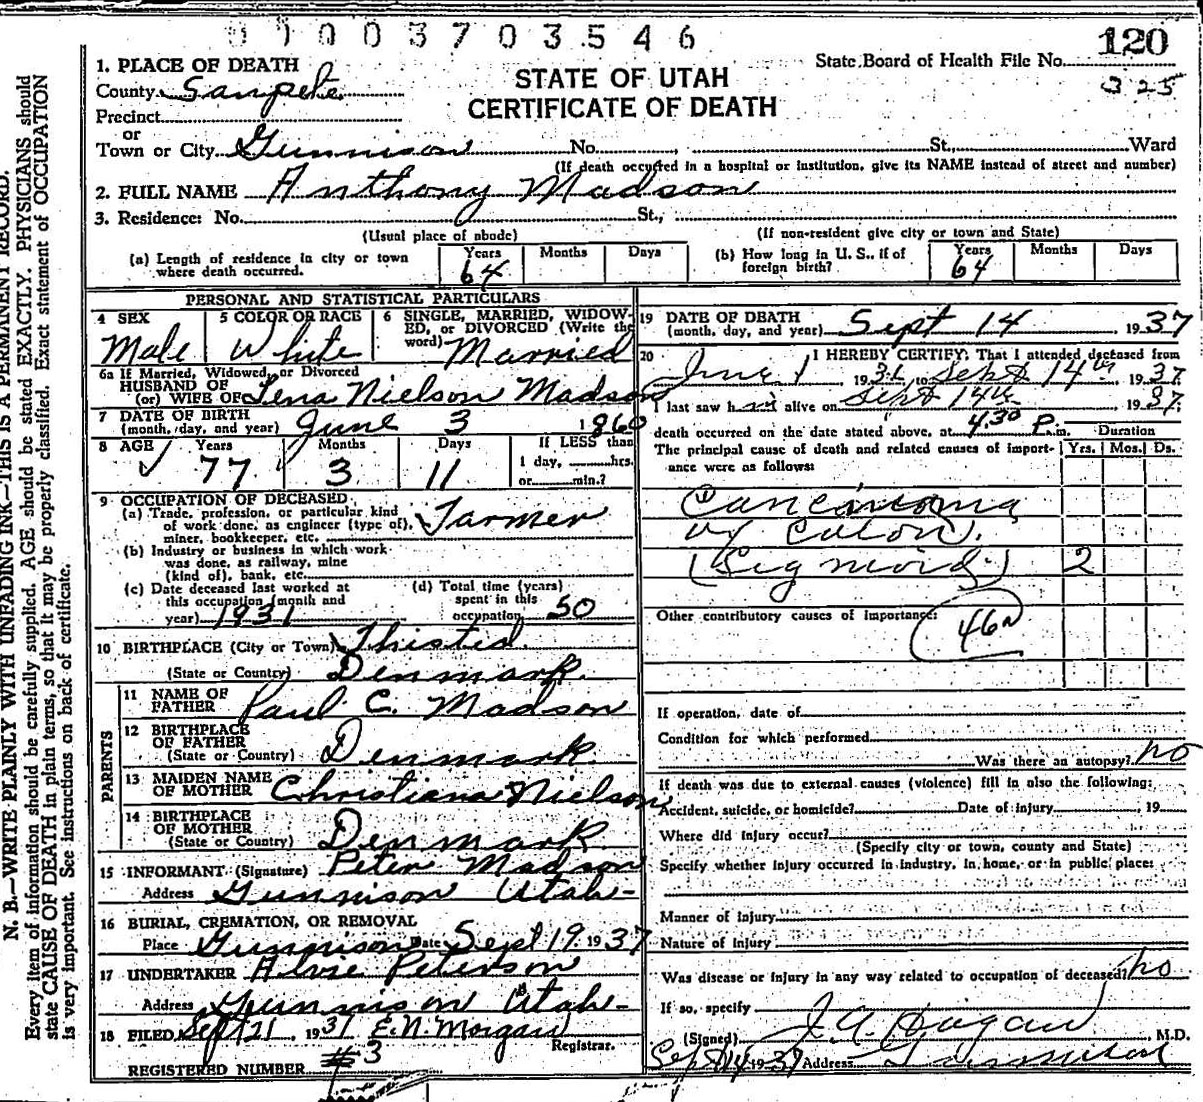 0 1 0 0 3 7 0 3 5 4 6
120
State Board of Health File No.
325
STATE OF UTAH
CERTIFICATE OF DEATH
1. PLACE OF DEATH
County Sanpete
Precinct
or
Town or City Gunnison No. St., Ward
(If death occurred in a hospital or institution, give its NAME instead of street and number)
2. FULL NAME Anthony Madson
3. Residence: No. St.,
(Usual place of abode) (If non-resident give city or town and State)
(a) Length of residence in city or town where death occurred. Years 64 Months Days
(b) How long in U. S., if of foreign birth? Years 64 Months Days
PERSONAL AND STATISTICAL PARTICULARS
4 SEX Male
5 COLOR OR RACE White
6 SINGLE, MARRIED, WIDOWED, or DIVORCED (Write the word) Married
6a If Married, Widowed, or Divorced
HUSBAND OF
(or) WIFE OF Lena Nielson Madson
7 DATE OF BIRTH
(month, day, and year) June 3 1860
8 AGE Years 77 Months 3 Days 11
If LESS than
1 day, hrs.
or min.?
9 OCCUPATION OF DECEASED
(a) Trade, profession, or particular kind
of work done, as engineer (type of),
miner, bookkeeper, etc. Farmer
(b) Industry or business in which work
was done, as railway, mine
(kind of), bank, etc.
(c) Date deceased last worked at
this occupation (month and
year) 1931
(d) Total time (years)
spent in this
occupation 50
10 BIRTHPLACE (City or Town) Thisted
(State or Country) Denmark.
PARENTS
11 NAME OF
FATHER Paul C. Madson
12 BIRTHPLACE
OF FATHER
(State or Country) Denmark.
13 MAIDEN NAME
OF MOTHER Christiana Nielson
14 BIRTHPLACE
OF MOTHER
(State or Country) Denmark
15 INFORMANT (Signature) Peter Madson
Address Gunnison Utah-
16 BURIAL, CREMATION, OR REMOVAL
Place Gunnison Date Sept 19 1937
17 UNDERTAKER Alvie Peterson
Address Gunnison Utah-
18 FILED Sept 21, 1937 E. N. Morgan
Registrar.
REGISTERED NUMBER #3
19 DATE OF DEATH
(month, day, and year) Sept 14, 1937
20 I HEREBY CERTIFY, That I attended deceased from
June 1 1931, to Sept 14th 1937
I last saw him alive on Sept 14th 1937
death occurred on the date stated above, at 4.30 P.m. Duration
The principal cause of death and related causes of importance were as follows: Yrs. Mos. Ds.
① Carcinoma
of Colon.
(Sigmoid) 2
Other contributory causes of importance:
46a
If operation, date of
Condition for which performed
Was there an autopsy? no
If death was due to external causes (violence) fill in also the following:
Accident, suicide, or homicide? Date of injury , 19
Where did injury occur?
(Specify city or town, county and State)
Specify whether injury occurred in industry, in home, or in public place:
Manner of Injury
Nature of Injury
Was disease or injury in any way related to occupation of deceased? no
If so, specify
(Signed) J. A. Hagan, M.D.
Sept 14 1937 Address Gunnison
N. B.—WRITE PLAINLY WITH UNFADING INK—THIS IS A PERMANENT RECORD.
Every item of information should be carefully supplied. AGE should be stated EXACTLY. PHYSICIANS should
state CAUSE OF DEATH in plain terms, so that it may be properly classified. Exact statement of OCCUPATION
is very important. See instructions on back of certificate.